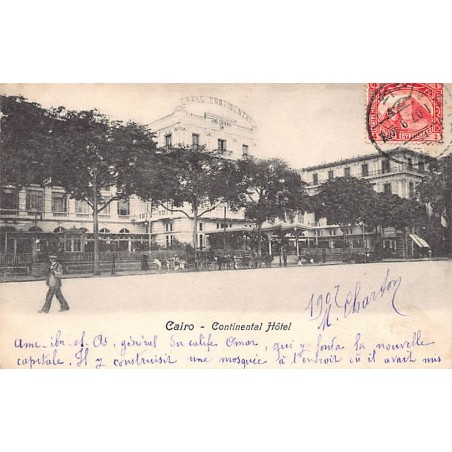 GRAND CONTINENTAL
Cairo - Continental Hôtel
1907
M. Charton
Ame-ibn-el-As, général du calife Omar, qui y fonda la nouvelle
capitale. Il y construisit une mosquée à l'endroit où il avait mis